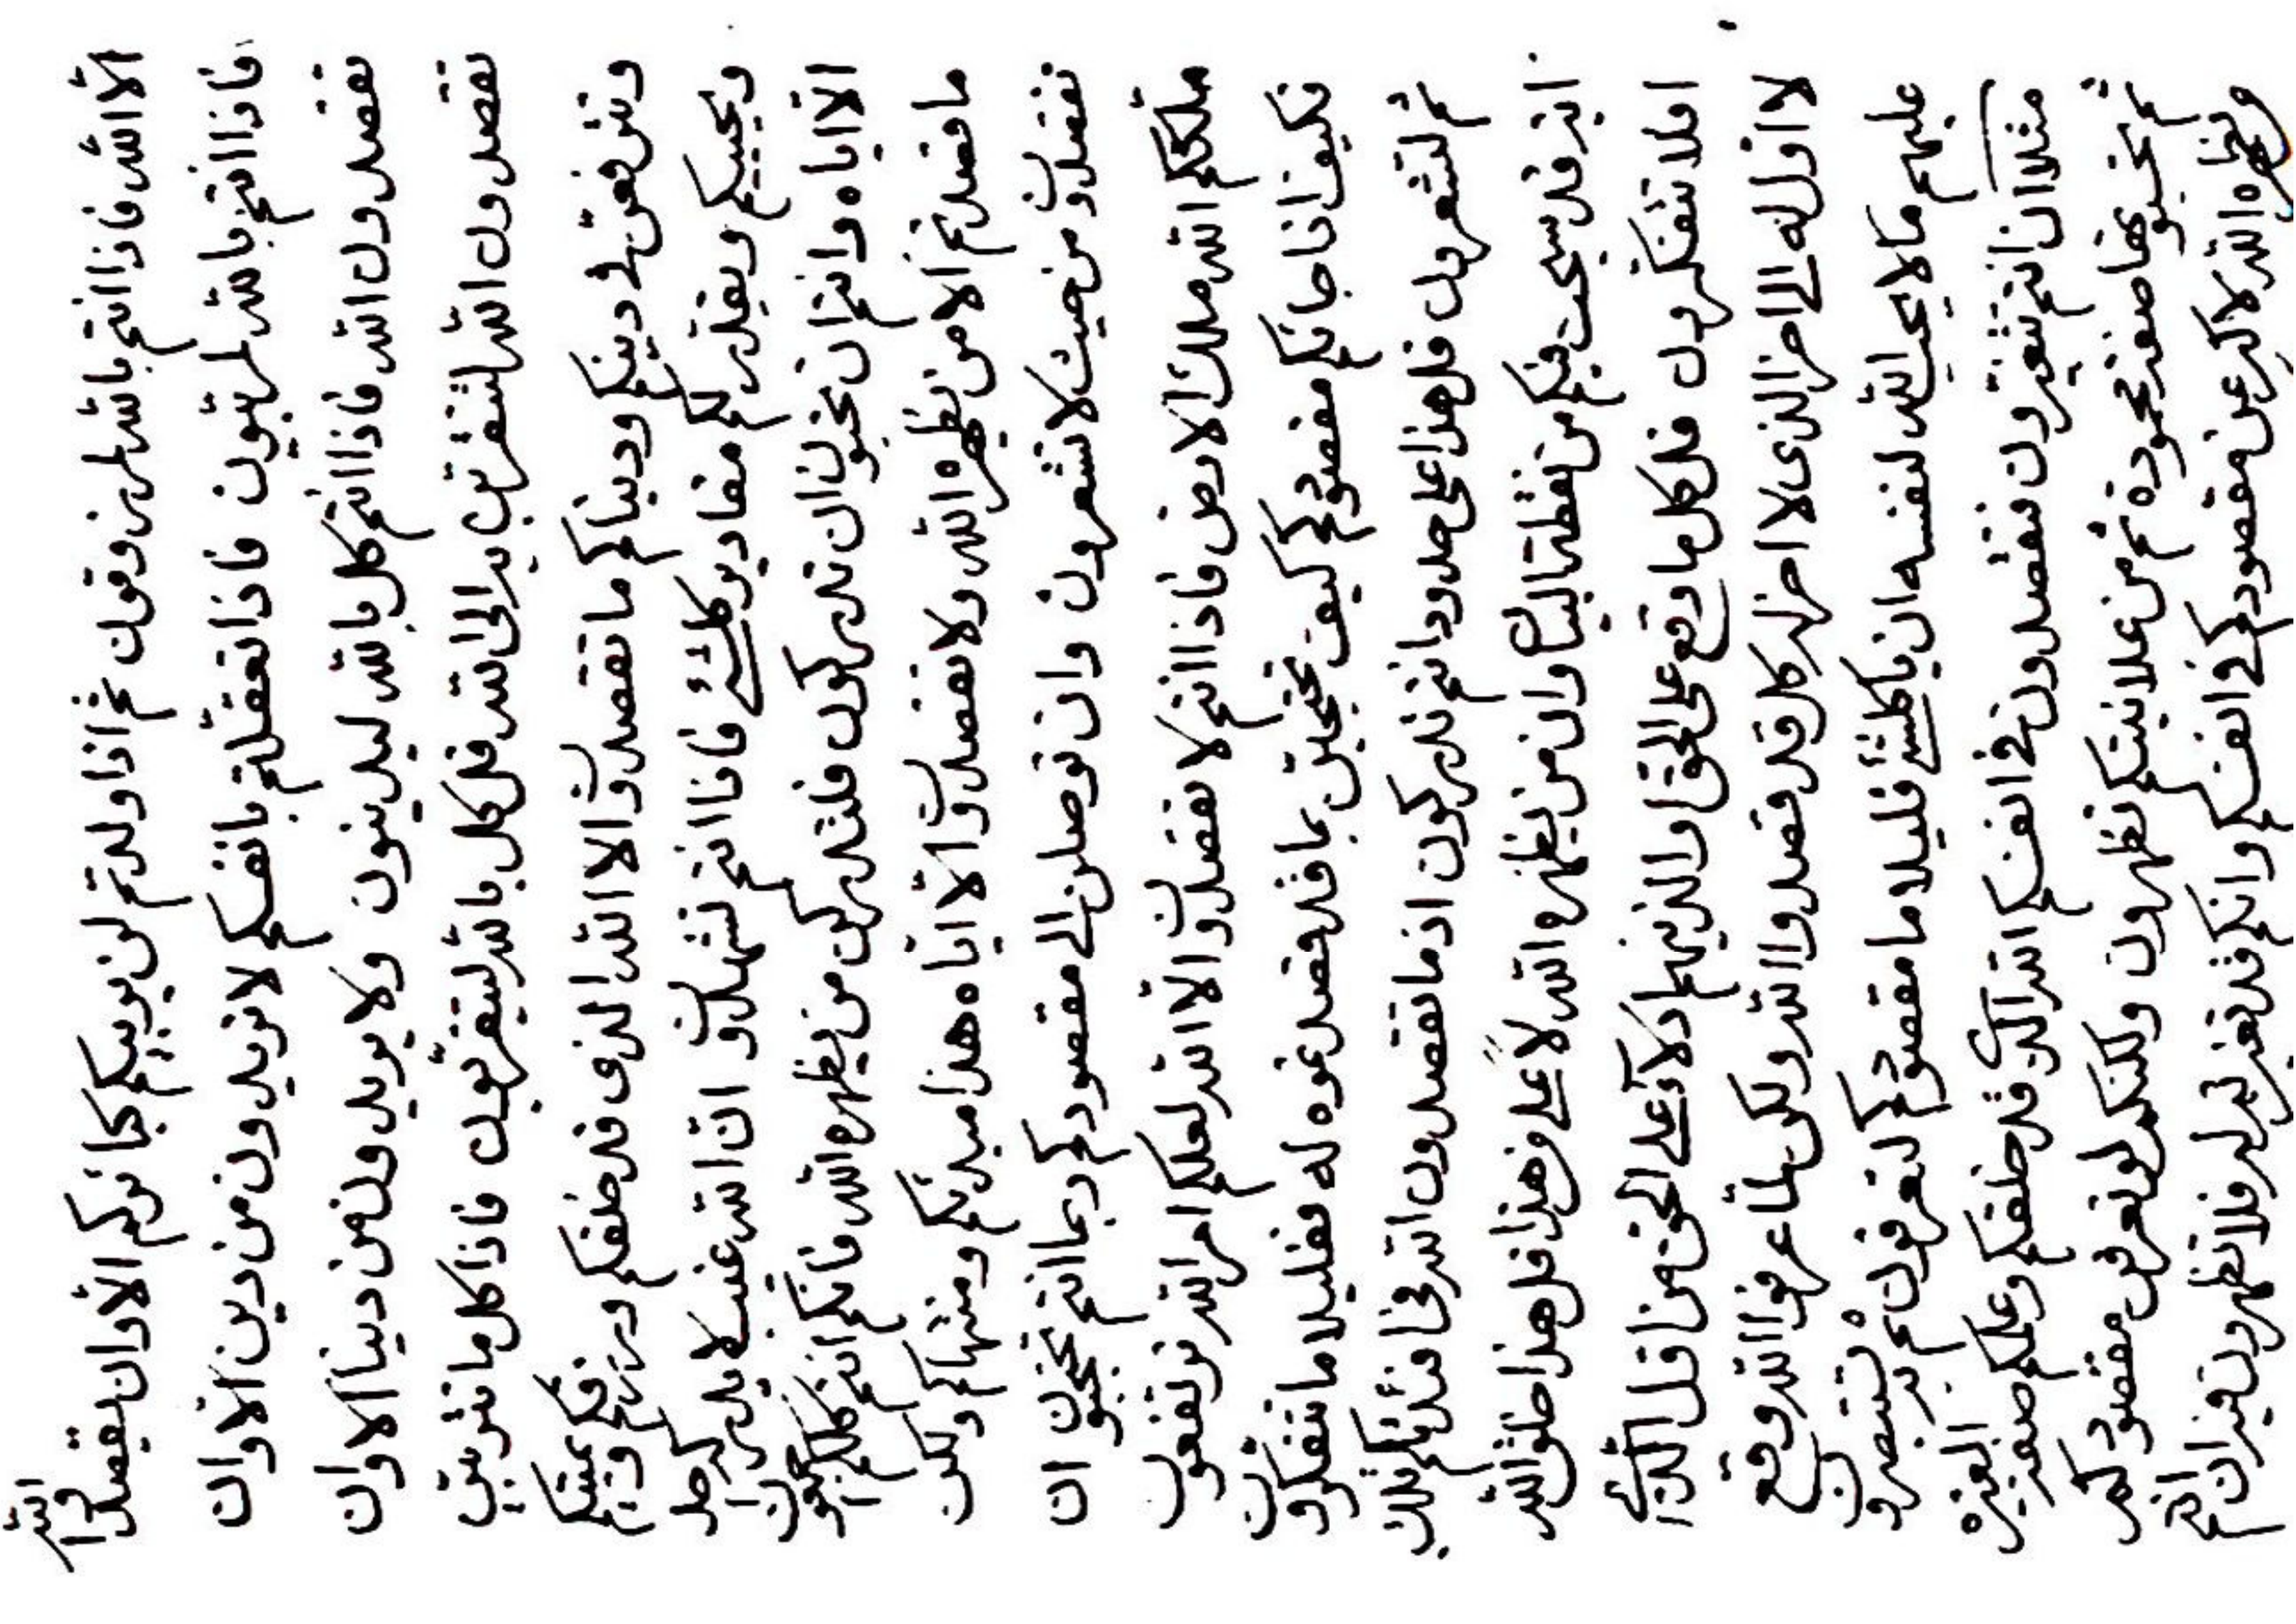 الا الله فاذا انتم بالله لمرزوقون ثم اذا ولدتم لن يربيكم كبائركم الا وان يقصدوا الله
فاذا انتم بالله لمربيون فاذا تعقلتم بانفسكم لا تريدون من دين الا وان
تقصدون الله فاذا انتم كل بالله ليدينون ولا يريدون من دنيا الا وان
تقصدون الله لتتقربن به الى الله قل كل بالله ليتقربون فاذا كل ما تتربين
وتترفعن في دينكم ودنياكم ما تقصدون الا الله الذي قد خلقكم ورزقكم ويميتكم
ويحييكم ويقدر لكم مقادير كلشئ فاذا انتم لتشهدون ان الله غيب لا يدركه احد
الا اياه وانتم ان تحبون ان تدركون فلتدركن من يظهره الله فانكم انتم كلكم اجمعون
ما قصدتم الا من يظهره الله ولا تقصدون الا اياه هذا مبدئكم ومنتهاكم ولكن
تقصدون من حيث لا تشعرون وان توصلن الى مقصودكم ربما انتم تحتجبون ان
ملككم الله ملك الارض فاذا انتم لا تقصدون الا الله لعلكم امر الله ترتفعون
فكيف اذا جائكم مقصودكم كيف تحتجبن بما قد قصدتموه له فقليلا ما تتفكرون
ثم لتشعرون قل هذا على حدود انتم تدركون اذ ما تقصدون الله في افئدتكم تلك
اية قد سبحت فيكم من نقطة البيان وان من يظهره الله لاعلى وهذا قل هذا خلق الله
افلا تتفكرون قل كل ما وقع على الحق والذينهم ادلاء على الحق من اول الذي
لا اول له الى اخر الذي لا اخر له كل قد قصدوا الله ولكن لما عرفوا الله وقع
عليهم ما لا يحب الله لنفسه ان يا كلشئ قليلا ما مقصودكم لتعرفون ثم به تستبصرون
مثلا ان انتم تتغيرون فتقصدون في انفسكم الله الذي قد خلقكم وعلمكم صنعة العزيز
ثم صنعة محمودة ثم من علانيتكم تظهرون ولكنكم لو تعرفن مقصودكم
ويظهره الله لاكبر عن مقصودكم في انفسكم وانكم قد له فلا تظهرون فيه ان انتم